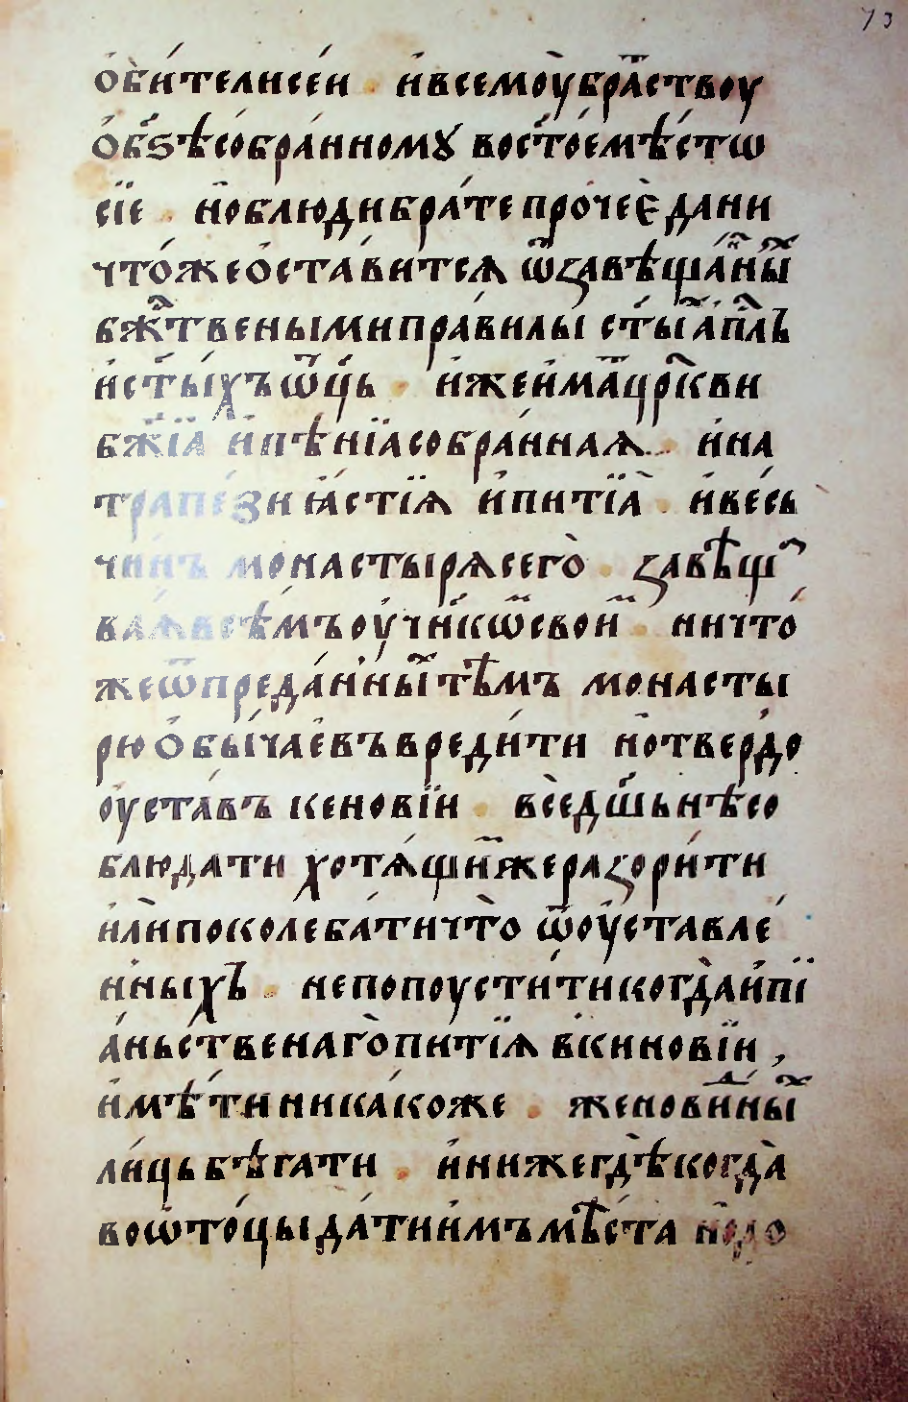 73
ѻ҆би́телисе́и . и҆всемоу̀бра́ствоу
ѻ҆бꙁѣсобра́нномꙋ востоемѣ́стѡ
сїе . ноблюдибра́те про́чеє дани
что́жеѻ҆ста́витсѧ ѿꙁавѣща́ны
бж҃твеными пра́вилы ст҃ы а҆пл҃ъ
и҆ст҃ы́хъ ѿц҃ь . и҆жеи҆ма црк҃ви
бж҃їѧ и҆пѣ́нїѧсобра́ннаѧ . и҆на
трапе́ꙁи ꙗ҆́стїѧ и҆питїа̀ . и҆ве́сь
чи́нъ монастырѧсего̀ . ꙁавѣщ
ваѧ́всѣ́мъ оу҆чн҃кѡ свои ничто́
жеѿпреда́нны тѣ́мъ монасты
рю ѻ҆бы́чаевъ вреди́ти но тве́рдо
оу҆ста́въ кеновїи . вседш҃ьнѣ со
блюдати хотѧ́щи же раꙁори́ти
и҆лѝ поколеба́ти что̀ ѿоу҆ставле́
нныхъ . непопоусти́ти когда̀ и҆пї
а́ньственаго̀ питїѧ вкиновїи ,
и҆мѣ́ти ника́коже . женови́ны
ли́ць бѣ́гати . и҆ниже гдѣ̀ когда̀
воѿто́цы да́ти и҆мъ мѣ́ста но до